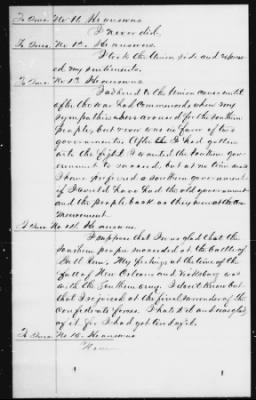 To Ques. No. 11. He answers
I never did.
To Ques. No. 12. He answers.
I took the Union side and
ed my sentiments.
To Ques. No. 13. He answers
I adhered to the Union cause until
after the war had commenced when my
sympathies were aroused for the southern
people, but never was in favor of two
governments. After I had gotten
into the fight I wanted the southern gov-
ernment to succeed, but at no time was
I have preferred a southern government
if I could have had the old government
and the people back as they were at the com-
mencement.
To Ques. No. 14. He answers.
I suppose that I was glad that the
southern people succeeded at the battle of
Bull Run. My feelings at the time of the
fall of New Orleans and Vicksburg was
with the Southern army. I don't know but
that I rejoiced at the final surrender of the
Confederate forces. I hated it and was glad
of it for I had got tired of it.
To Ques. No. 15. He answers
None